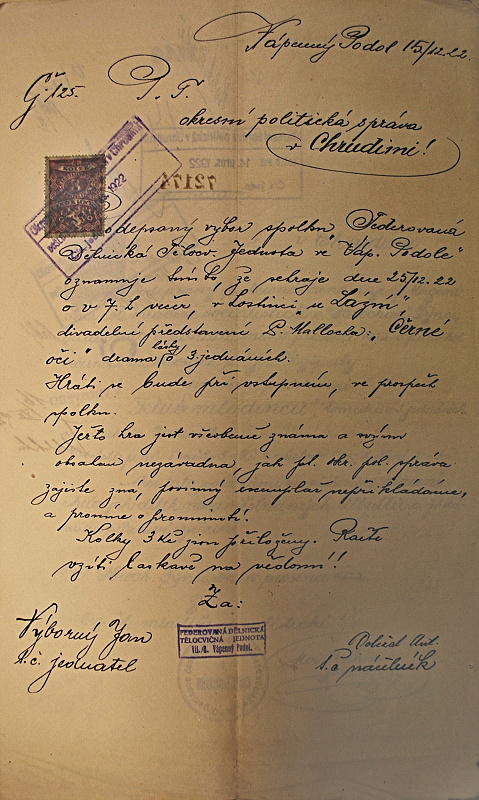 Vápenný Podol 15/12.22.
Čj: 125.
P. T.
okresní politická správa
v Chrudimi!
Podepsaný výbor spolku „Federovaná
Dělnická Tělocv. Jednota ve Váp. Podole"
oznamuje tímto, že sehraje dne 25/12.22
o v 7. h. večer, v hostinci „u Lázní",
divadelní představení S. Mallocha: „Černé
oči" drama lásky o 3. jednáních.
Hráti se bude při vstupném, ve prospěch
spolku.
Ježto hra jest všeobecně známa a svým
obsahem nezávadna, jak sl. okr. pol. správa
zajisté zná, povinný exemplář nepřikládáme,
a prosíme o prominutí.
Kolky 3 Kč jsou přiloženy. Račte
vzíti laskavě na vědomí!!
Za:
Výborný Jan
t. č. jednatel
FEDEROVANÁ DĚLNICKÁ
TĚLOCVIČNÁ JEDNOTA
Vápenný Podol.
Doležal Ant.
t. č. náčelník
1922
72174